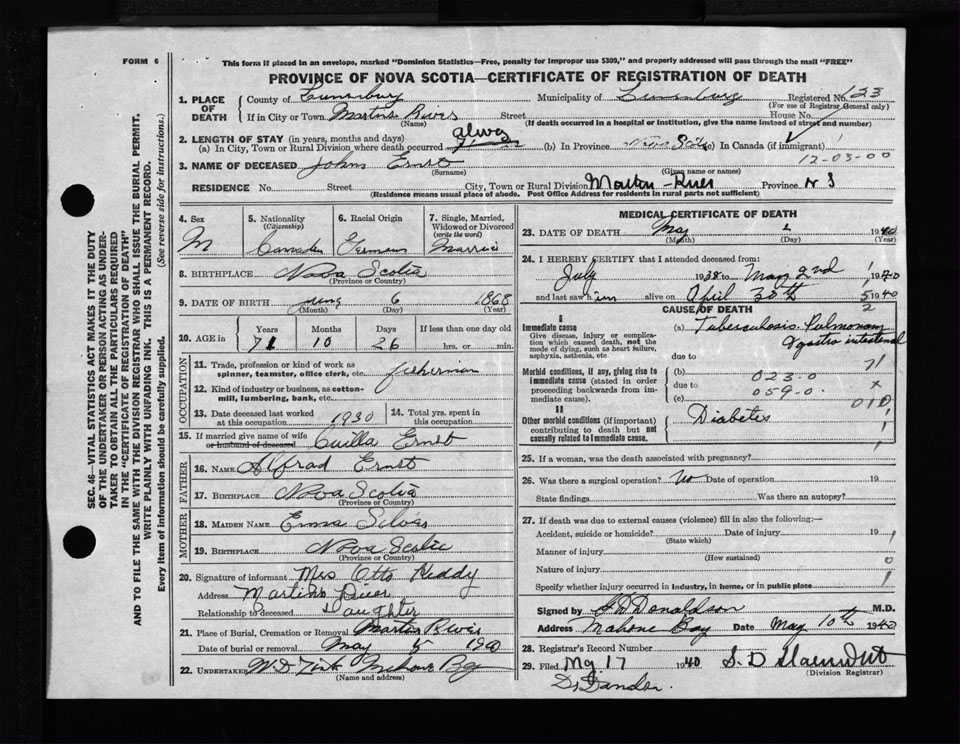 FORM 6
This form if placed in an envelope, marked "Dominion Statistics—Free, penalty for improper use $300," and properly addressed will pass through the mail "FREE"
PROVINCE OF NOVA SCOTIA—CERTIFICATE OF REGISTRATION OF DEATH
1. PLACE OF DEATH
County of Lunenburg Municipality of Lunenburg Registered No. 123
(For use of Registrar General only)
If in City or Town Martins River Street House No.
(Name) (If death occurred in a hospital or institution, give the name instead of street and number)
2. LENGTH OF STAY (in years, months and days)
(a) In City, Town or Rural Division where death occurred (b) In Province Nova Scotia (c) In Canada (if immigrant)
12-03-00
3. NAME OF DECEASED John Ernst
(Surname) (Given name or names)
RESIDENCE No. Street City, Town or Rural Division River Province N S
(Residence means usual place of abode. Post Office Address for residents in rural parts not sufficient)
4. Sex
M
5. Nationality
(Citizenship)
6. Racial Origin
German
7. Single, Married, Widowed or Divorced
(write the word)
8. BIRTHPLACE Nova Scotia
(Province or Country)
9. DATE OF BIRTH 6 1868
(Month) (Day) (Year)
10. AGE in
Years Months Days If less than one day old
71 10 26 hrs. or min.
OCCUPATION
11. Trade, profession or kind of work as spinner, teamster, office clerk, etc. fisherman
12. Kind of industry or business, as cotton-mill, lumbering, bank, etc.
13. Date deceased last worked at this occupation 1930
14. Total yrs. spent in this occupation
15. If married give name of wife or husband of deceased Ernst
FATHER
16. NAME Alfrad Ernst
17. BIRTHPLACE Nova Scotia
(Province or Country)
MOTHER
18. MAIDEN NAME Emma
19. BIRTHPLACE Nova Scotia
(Province or Country)
20. Signature of informant Mrs Otto Hiddy
Address Martins River
Relationship to deceased Daughter
21. Place of Burial, Cremation or Removal Martins River
Date of burial or removal May 5 1940
22. UNDERTAKER W. D. Zink Mahone Bay
(Name and address)
MEDICAL CERTIFICATE OF DEATH
23. DATE OF DEATH May 1940
(Month) (Day) (Year)
24. I HEREBY CERTIFY that I attended deceased from:
July 1938 to May 2nd 1940
and last saw him alive on April 30th 1940
CAUSE OF DEATH
I
Immediate cause
Give disease, injury or complication which caused death, not the mode of dying, such as heart failure, asphyxia, asthenia, etc.
(a) Tuberculosis Pulmonary
& gastro intestinal
due to
Morbid conditions, if any, giving rise to immediate cause (stated in order proceeding backwards from immediate cause).
(b) 023.0
due to
(c) 059.0
010
II
Other morbid conditions (if important) contributing to death but not causally related to immediate cause.
Diabetes
25. If a woman, was the death associated with pregnancy?
26. Was there a surgical operation? No Date of operation 19
State findings Was there an autopsy?
27. If death was due to external causes (violence) fill in also the following:—
Accident, suicide or homicide? Date of injury 19
(State which)
Manner of injury
(How sustained)
Nature of injury
Specify whether injury occurred in industry, in home, or in public place
Signed by Donaldson M.D.
Address Mahone Bay Date May 10th 1940
28. Registrar's Record Number
29. Filed 17 1940 S. D.
(Division Registrar)
SEC. 46—VITAL STATISTICS ACT MAKES IT THE DUTY
OF THE UNDERTAKER OR PERSON ACTING AS UNDER-
TAKER TO OBTAIN ALL THE PARTICULARS REQUIRED
IN THE "CERTIFICATE OF REGISTRATION OF DEATH"
AND TO FILE THE SAME WITH THE DIVISION REGISTRAR WHO SHALL ISSUE THE BURIAL PERMIT.
WRITE PLAINLY WITH UNFADING INK. THIS IS A PERMANENT RECORD.
Every item of information should be carefully supplied. (See reverse side for instructions.)